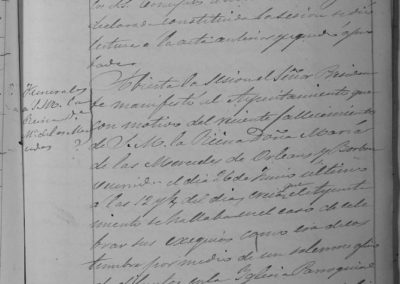 declarada constituida la sesión se dió
lectura a la acta anterior y quedó apro
bada.
Funerales
a S.M. la
Reina D.ª
M.ª de las Mer
cedes
Abierta la sesion el Señor Presiden
te manifestó al Ayuntamiento que
con motivo del reciente fallecimiento
de S. M. la Reina Doña Maria
de las Mercedes de Orleans y Borbon
ocurrido el dia 26 de Junio ultimo
a las 12 y ¼ del dia, creia que el Ayunta
miento se hallaba en el caso de cele
brar sus exequias como era de cos
tumbre por medio de un solemne
en la Iglesia Parroquial